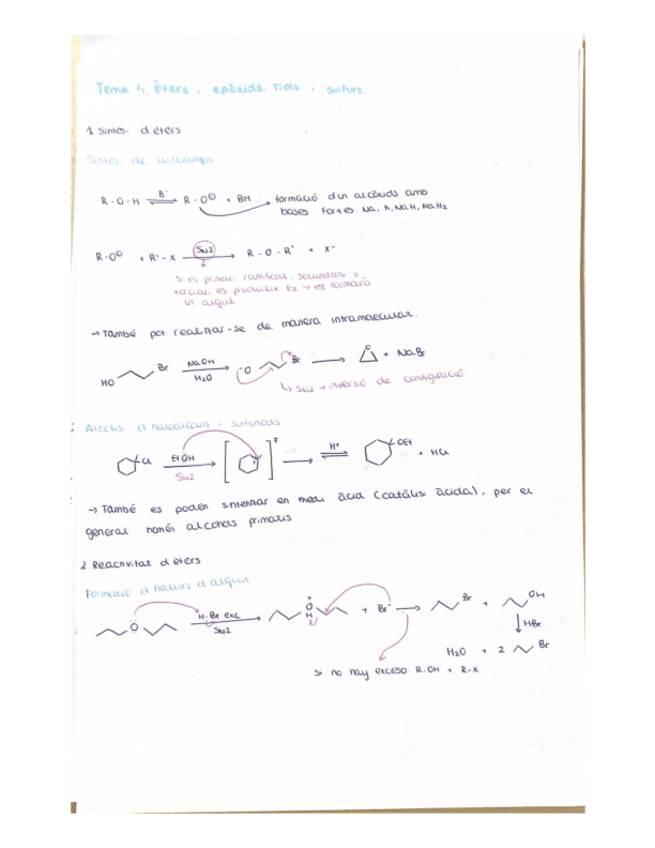 Tema 4. Èters i epòxids. Tiols i sulfurs.
1. Síntesi d'èters
Síntesi de Williamson
R-O-H ⇌ R-O⊖ + BH formació d'un alcòxids amb
B⁻
bases fortes: Na, K, NaH, NaNH₂
R-O⊖ + R'-X → R-O-R' + X⁻
SN2
Si és primari ramificat, secundari o
terciari, es produeix E2 → es formarà
un alquè
→ També pot realitzar-se de manera intramolecular.
HO Br NaOH ⁻O Br → O + NaBr
H₂O
↳ SN2 → inversió de configuració
Alcòlisi d'haloalcans i sulfonats
Cl EtOH [ + ]‡ → H⁺ ⇌ OEt + HCl
SN2
→ També es poden sintetitzar en medi àcid (catàlisi àcida), per el
general només alcohols primaris
2. Reactivitat d'èters
Formació d'halurs d'alquil
O H-Br exc. O⁺ H + Br⁻ → Br + OH
SN2
↓ HBr
H₂O + 2 Br
si no hay exceso: R-OH + R-X